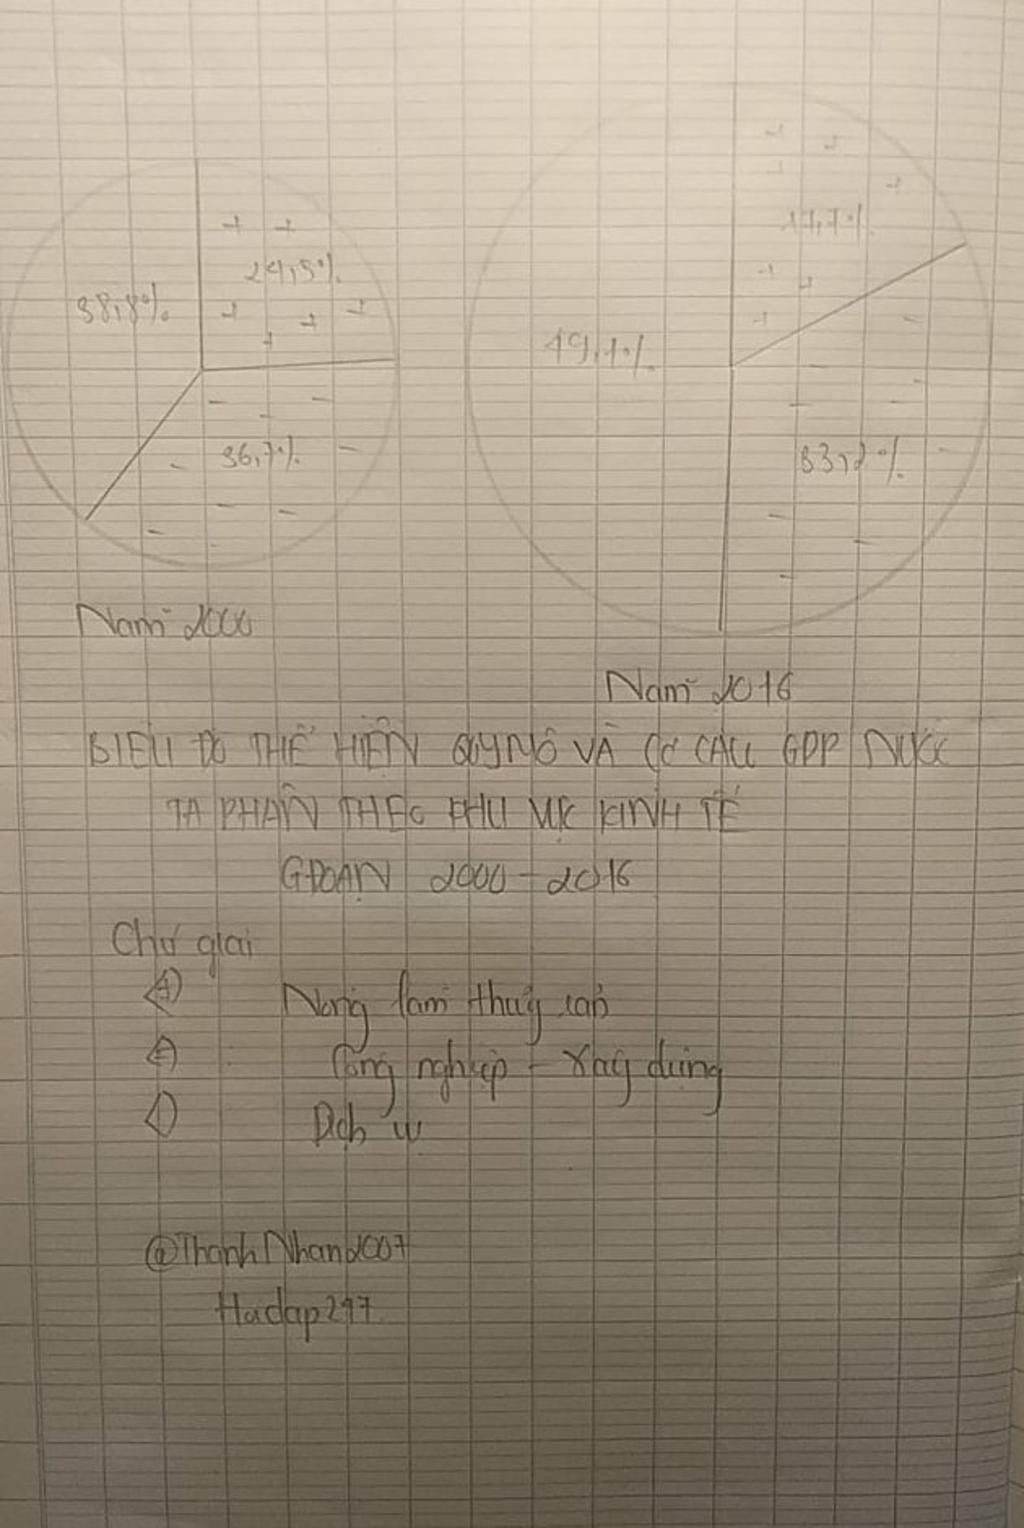 24,5%
38,8%
36,7%
17,7%
49,1%
33,2%
Năm 2000
Năm 2016
BIỂU ĐỒ THỂ HIỆN QUY MÔ VÀ CƠ CẤU GDP NƯỚC
TA PHÂN THEO KHU VỰC KINH TẾ
GĐOẠN 2000-2016
Chú giải
Nông lâm thuỷ sản
Công nghiệp - Xây dựng
Dịch vụ
@ThanhNhan2007
Hadap247